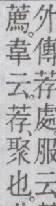 外傳荐處服云
薦韋云荐聚也